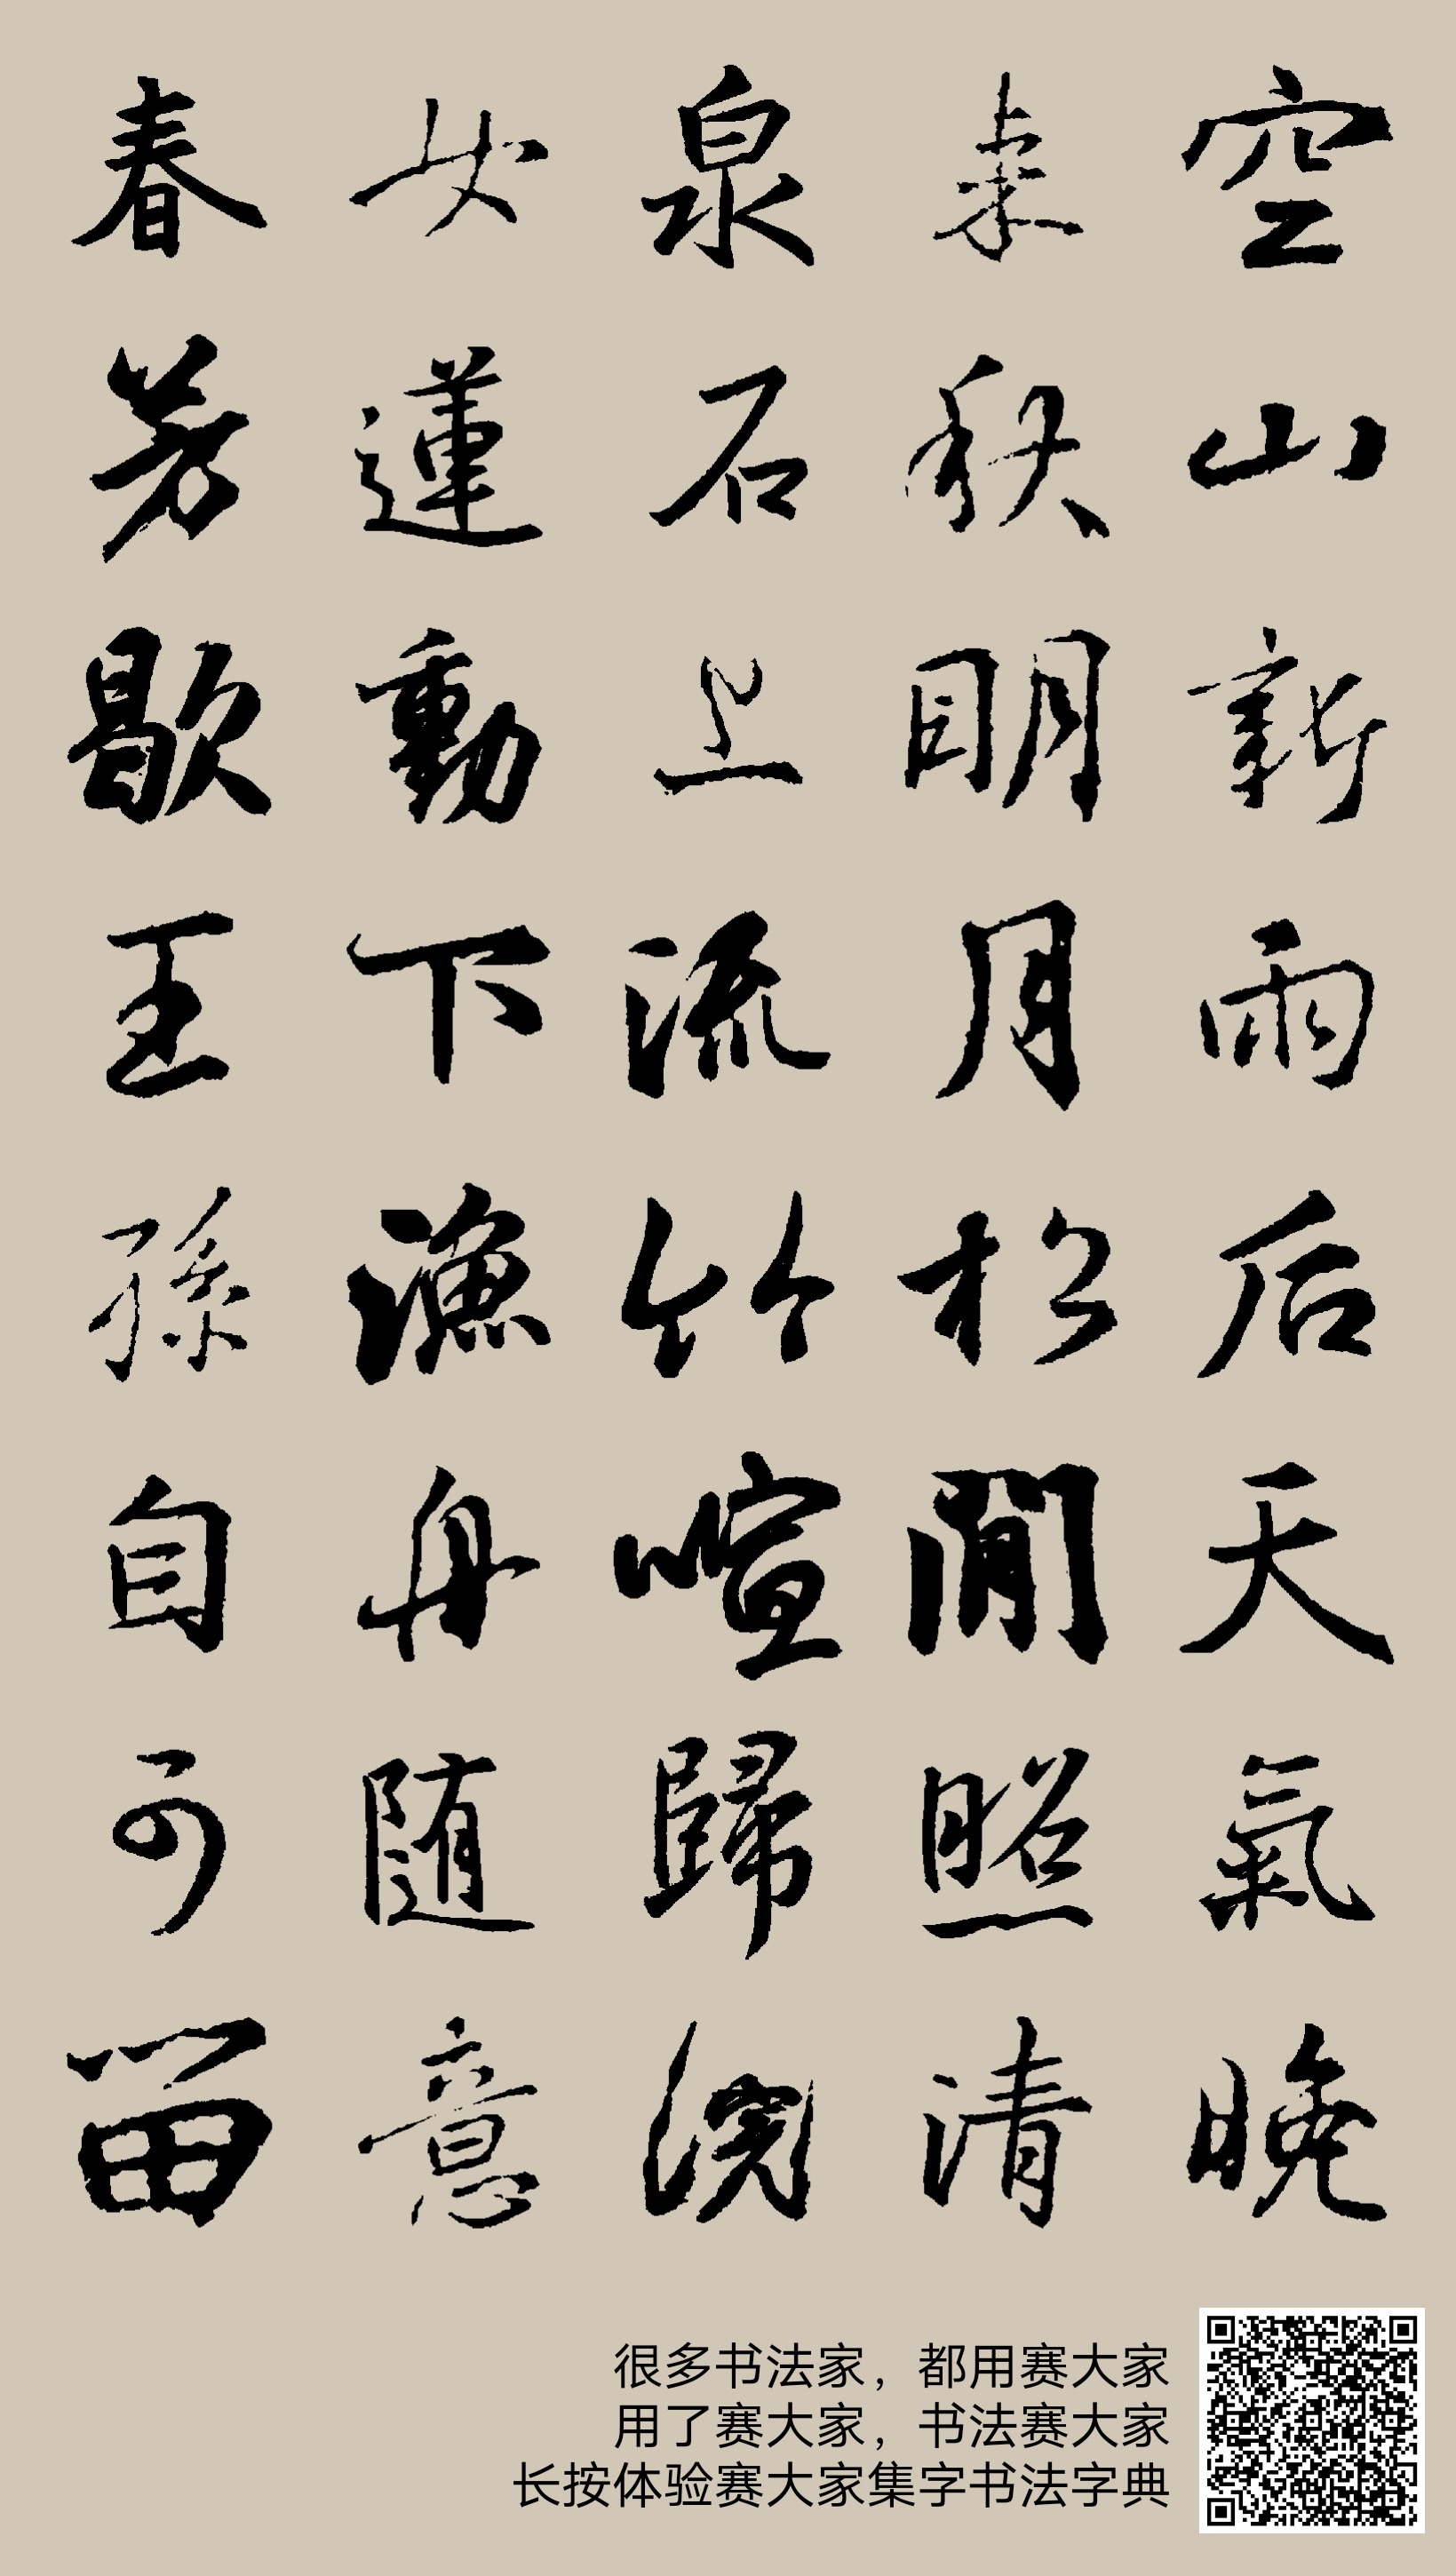 空山新雨后天氣晚
来秋明月松閒照清
泉石上流竹喧歸浣
女蓮動下漁舟随意
春芳歇王孫自可留
很多书法家，都用赛大家
用了赛大家，书法赛大家
长按体验赛大家集字书法字典